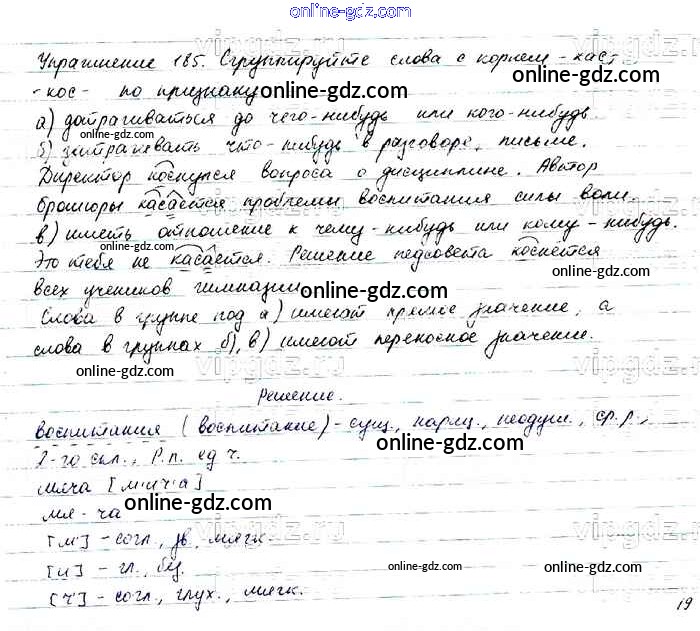 online-gdz.com
Упражнение 185. Сгруппируйте слова с корнем -кас-,
-кос- по признаку online-gdz.com
а) дотрагиваться до чего-нибудь или кого-нибудь
online-gdz.com
б) затрагивать что-нибудь в разговоре, письме.
Директор коснулся вопроса о дисциплине. Автор
брошюры касается проблемы воспитания силы воли.
в) иметь отношение к чему-нибудь или кому-нибудь.
online-gdz.com
Это тебя не касается. Решение педсовета коснётся
online-gdz.com
всех учеников гимназии online-gdz.com
Слова в группе под а) имеют прямое значение, а
слова в группах б), в) имеют переносное значение.
online-gdz.com
vipgdz.ru
Решение.
воспитания (воспитание) - сущ., нариц., неодуш., ср.р.,
online-gdz.com
2-го скл., Р.п. ед ч.
мяча [м'и'ч'а]
online-gdz.com
мя-ча
[м'] - согл., зв., мягк.
[и] - гл., бц.
online-gdz.com
[ч'] - согл., глух., мягк.
online-gdz.com
19